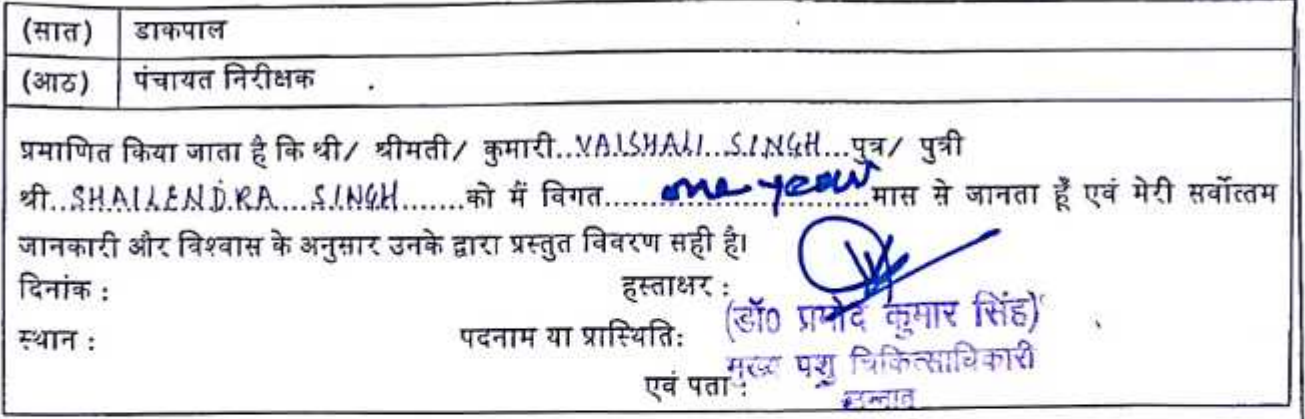 (सात) डाकपाल
(आठ) पंचायत निरीक्षक .
प्रमाणित किया जाता है कि श्री/ श्रीमती/ कुमारी..VAISHALI...SINGH...पुत्र/ पुत्री
श्री..SHAILENDRA....SINGH........को मैं विगत......one year......मास से जानता हूँ एवं मेरी सर्वोत्तम
जानकारी और विश्वास के अनुसार उनके द्वारा प्रस्तुत विवरण सही है।
दिनांक : हस्ताक्षर :
(डॉ० प्रमोद कुमार सिंह)
स्थान : पदनाम या प्रास्थिति:
मुख्य पशु चिकित्साधिकारी
एवं पता :
उन्नाव